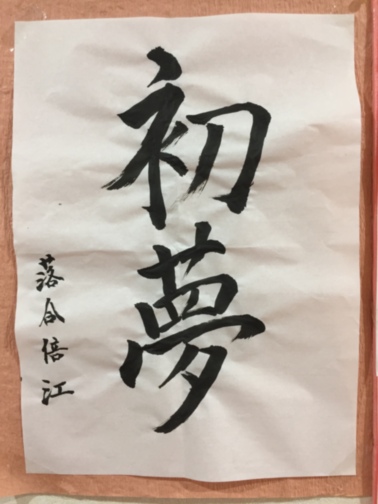 初夢
落合倍江